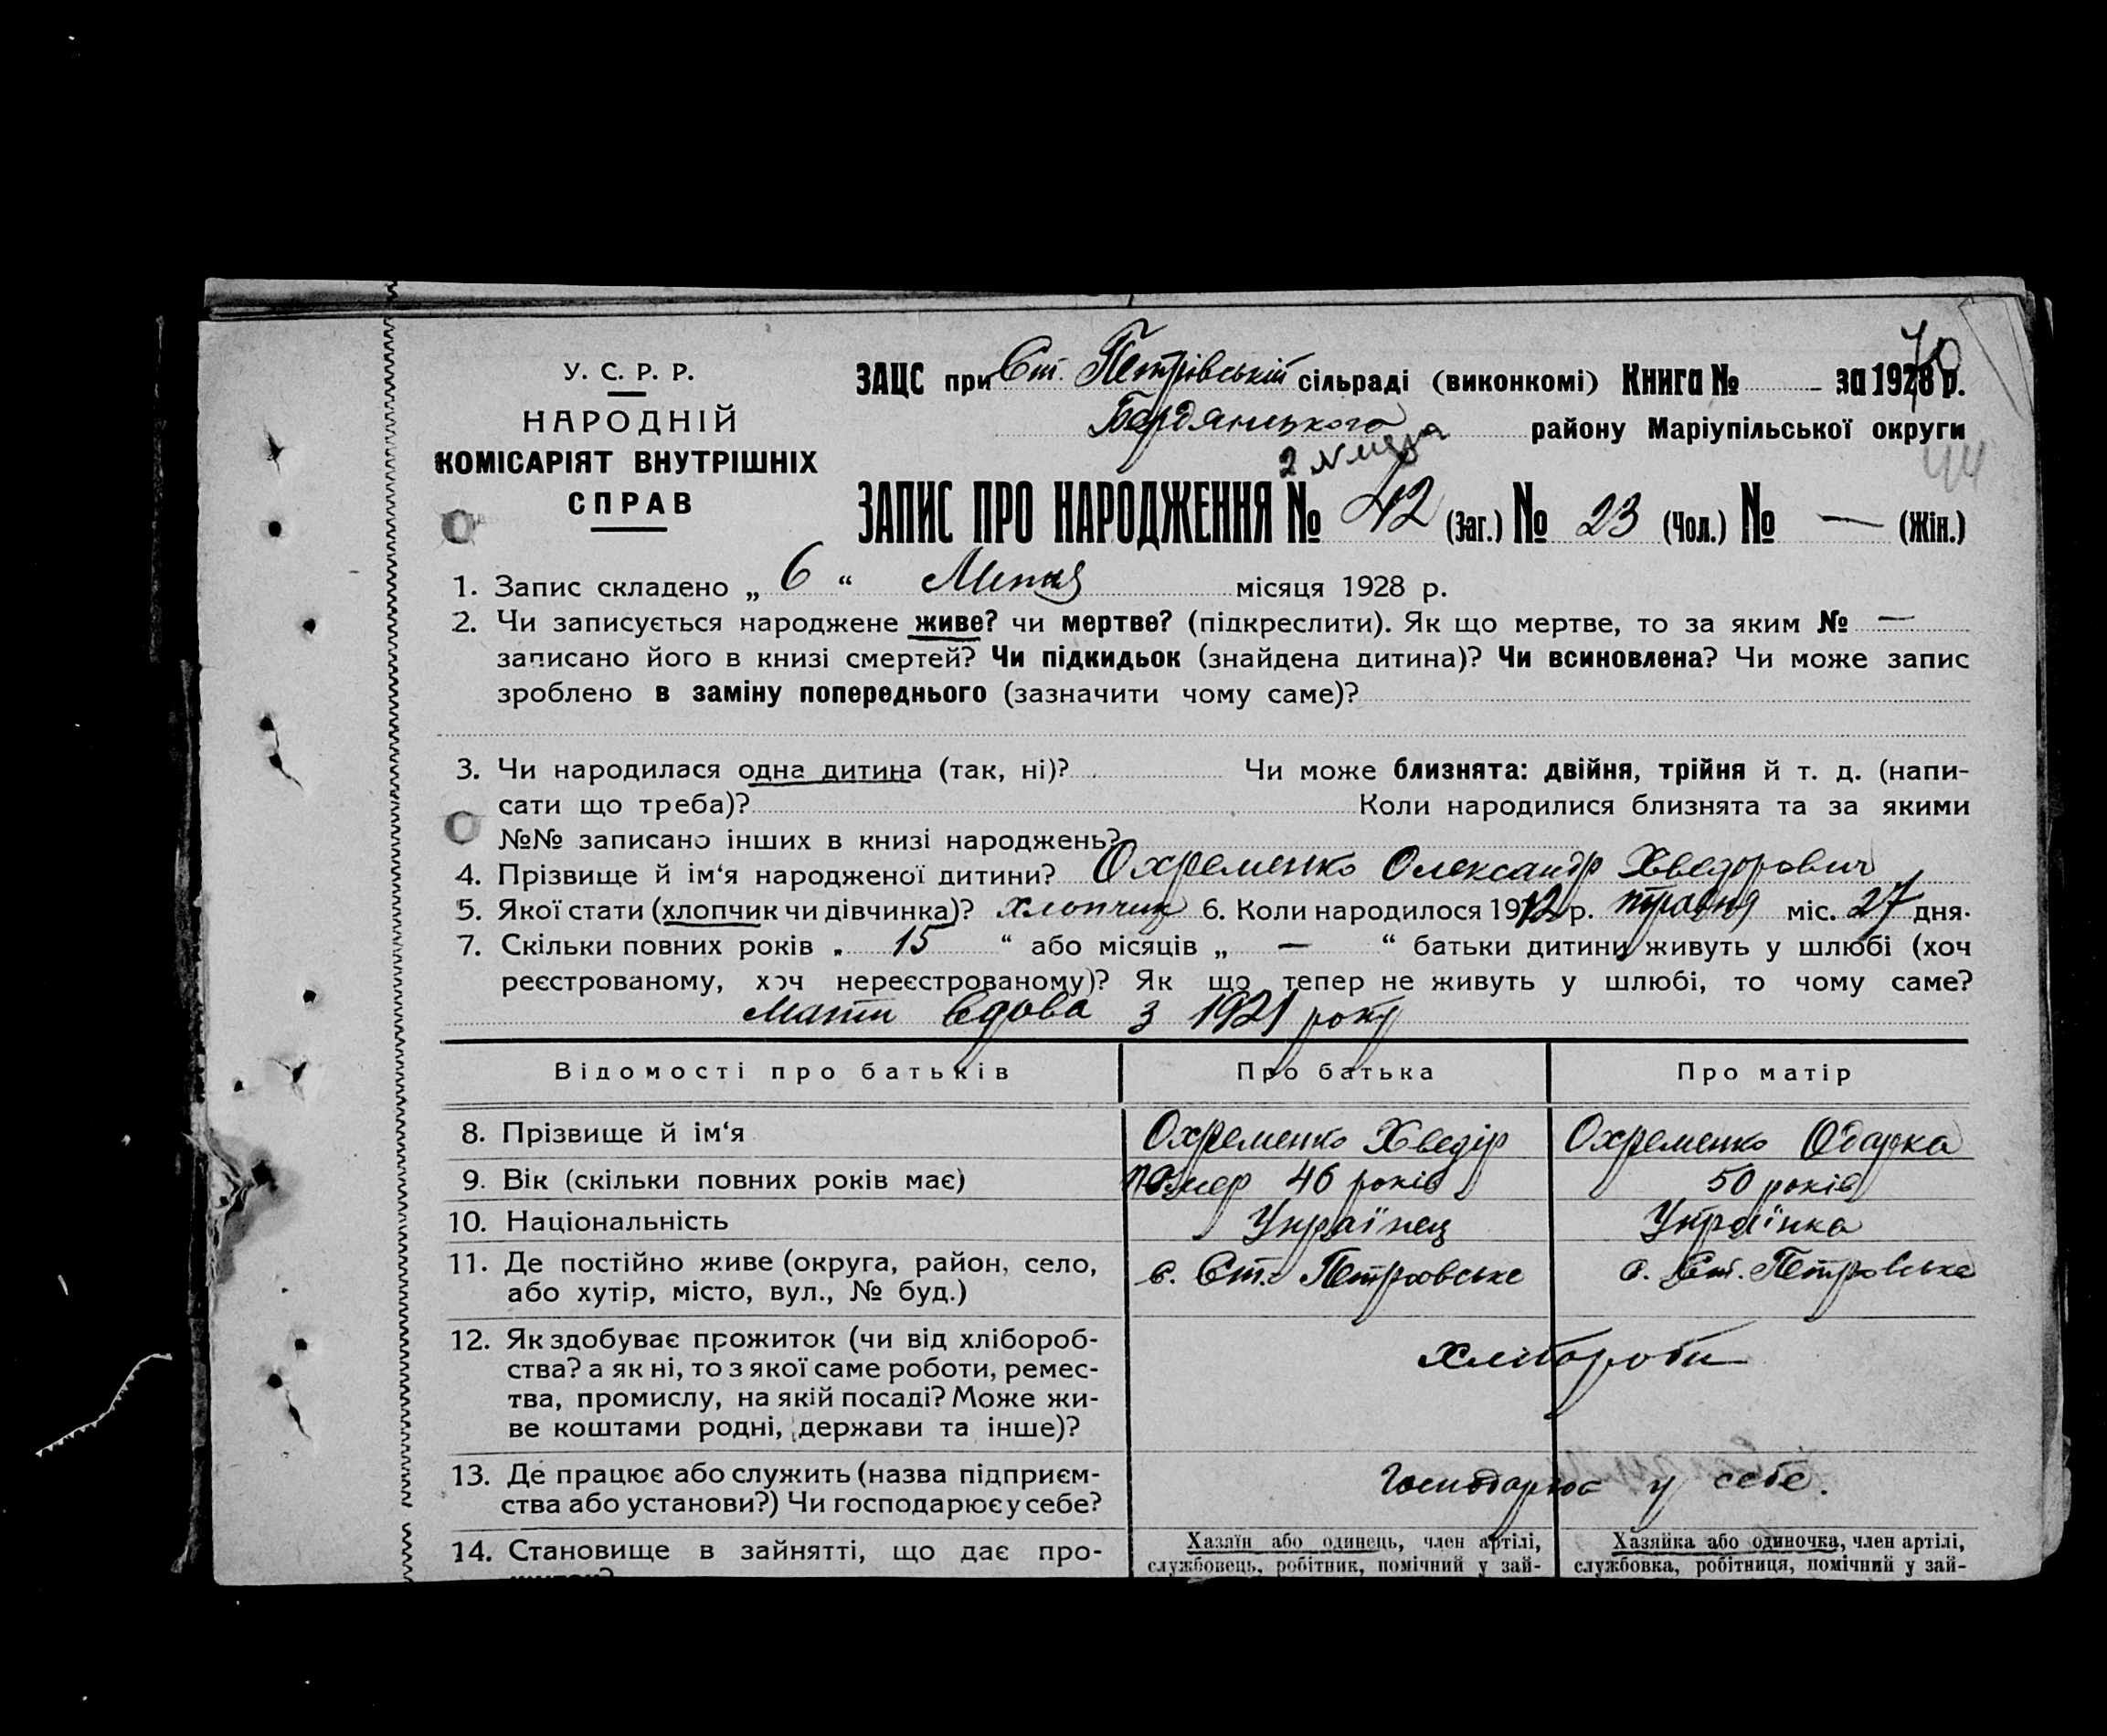 У. С. Р. Р.
НАРОДНІЙ
КОМІСАРІЯТ ВНУТРІШНІХ
СПРАВ
70
ЗАЦС при Ст. Петрівській сільраді (виконкомі) Книга № — за 1928 р.
Бердянського району Маріупільської округи
44
ЗАПИС ПРО НАРОДЖЕННЯ № 42 (Заг.) № 23 (Чол.) № — (Жін.)
1. Запис складено „ 6 “ Липня місяця 1928 р.
2. Чи записується народжене живе? чи мертве? (підкреслити). Як що мертве, то за яким № —
записано його в книзі смертей? Чи підкидьок (знайдена дитина)? Чи всиновлена? Чи може запис
зроблено в заміну попереднього (зазначити чому саме)?
3. Чи народилася одна дитина (так, ні)? Чи може близнята: двійня, трійня й т. д. (напи-
сати що треба)? Коли народилися близнята та за якими
№№ записано інших в книзі народжень?
4. Прізвище й ім‘я народженої дитини? Охременко Олександр Хведорович
5. Якої стати (хлопчик чи дівчинка)? хлопчик 6. Коли народилося 1912 р. травня міс. 27 дня.
7. Скільки повних років „ 15 “ або місяців „ — “ батьки дитини живуть у шлюбі (хоч
реєстрованому, хоч нереєстрованому)? Як що тепер не живуть у шлюбі, то чому саме?
Мати вдова з 1921 року
Відомості про батьків Про батька Про матір
8. Прізвище й ім‘я Охременко Хведір Охременко Одарка
9. Вік (скільки повних років має) помер 46 років 50 років
10. Національність Українец Українка
11. Де постійно живе (округа, район, село, с. Ст. Петровське с. Ст. Петровське
або хутір, місто, вул., № буд.)
12. Як здобуває прожиток (чи від хлібороб-
ства? а як ні, то з якої саме роботи, ремес- Хлібороби
тва, промислу, на якій посаді? Може жи-
ве коштами родні, держави та інше)?
13. Де працює або служить (назва підприєм- у себе.
ства або установи?) Чи господарює у себе?
14. Становище в зайнятті, що дає про- Хазяїн або одинець, член артілі, Хазяйка або одиночка, член артілі,
службовець, робітник, помічний у зай- службовка, робітниця, помічний у зай-